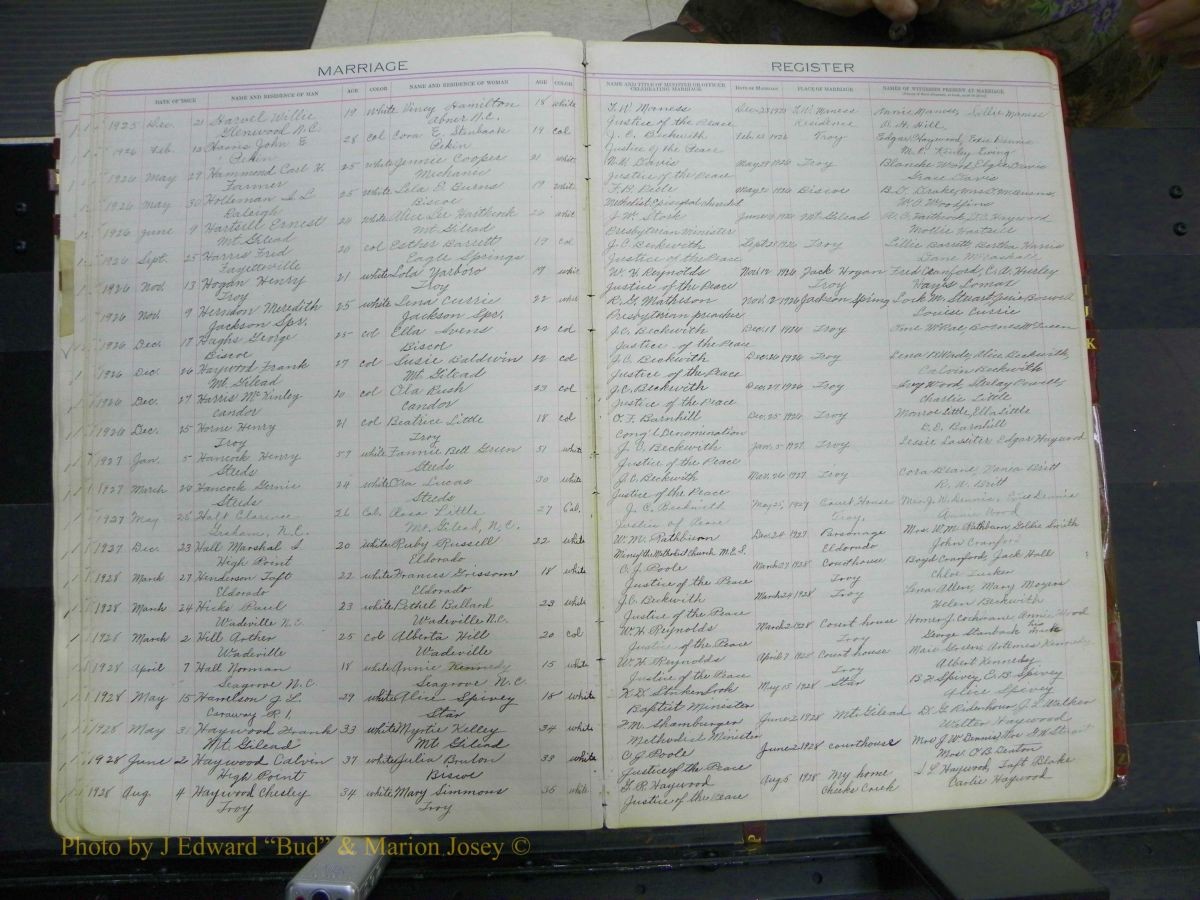 MARRIAGE
REGISTER
DATE OF ISSUE NAME AND RESIDENCE OF MAN AGE COLOR NAME AND RESIDENCE OF WOMAN AGE COLOR
NAME AND TITLE OF MINISTER OR OFFICER CELEBRATING MARRIAGE DATE OF MARRIAGE PLACE OF MARRIAGE NAMES OF WITNESSES PRESENT AT MARRIAGE
1925 Dec. 21 Harvel Willie 19 white Viney Hamilton 18 white F. W. Maness Dec 23 1925 F. W. Maness Nannie Maness, Nellie Maness
Glenwood N.C. Abner N.C. Justice of the Peace Residence D. H. Hill
1926 Feb. 13 Harris John E 28 col Cora E. Stanback 19 col J. C. Beckwith Feb 13 1926 Troy Edgar Haywood, Essie Dennis
Pekin Pekin Justice of the Peace M. C. Kinley Ewing
1926 May 29 Hammond Carl H. 25 white Jennie Cooper 21 white N. H. Davis May 29 1926 Troy Blanche Wood, Clyde Davis
Farmer Mechanic Justice of the Peace Grace Davis
1926 May 30 Holleman S. L 25 white Lela E Burns 19 white F. B. Peele May 30 1926 Biscoe
Raleigh Biscoe Methodist Episcopal church W. C. Woodfins
1926 June 9 Hartsell Ernest 26 white Alice Lee Haithcock 26 white J. W. Stork June 1926 Mt Gilead
Mt. Gilead Mt. Gilead Presbyterian Minister Mollie Hartsell
1926 Sept. 25 Harris Fred 20 col Esther Barrett 19 col J. C. Beckwith Sept 25 1926 Troy Lillie Barrett Bertha Harris
Fayetteville Eagle Springs Justice of the Peace Jane McCaskall
1926 Nov. 13 Hogan Henry 21 white Lola Yarboro 17 white W. H. Reynolds Nov. 12 1926 Jack Hogan Fred Cranford, C. A. Hurley
Troy Troy Justice of the Peace Troy Hays Lomax
1926 Nov. 9 Herndon Meredith 25 white Lena Currie 22 white R. G. Matheson Nov. 2 1926 Jackson Spring Lock M. Stuart, Julie Boswell
Jackson Spr. Jackson Spr. Presbytrian preacher Louise Currie
1926 Dec. 17 Hughs George 25 col Ella Ivens 22 col J. C. Beckwith Dec. 18 1926 Troy
Biscoe Biscoe Justice of the Peace
1926 Dec. 26 Haywood Frank 27 col Susie Baldwin 22 col J. C. Beckwith Dec. 26 1926 Troy Lena B. Wade, Alice Beckwith,
Mt. Gilead Mt. Gilead Justice of the Peace Calvin Beckwith
1926 Dec. 27 Harris McKinley 20 col Ola Rush 23 col J. C. Beckwith Dec. 27 1926 Troy Ivey Wood, Staley Powell
Candor Candor Justice of the Peace Charlie Little
1926 Dec. 25 Horne Henry 21 col Beatrice Little 18 col O. F. Barnhill Dec. 25 1926 Troy Monroe Little, Ella Little
Troy Troy Cong'l Denomination D. D. Barnhill
1927 Jan. 5 Hancock Henry 57 white Fannie Bell Green 51 white J. C. Beckwith Jan. 5 1927 Troy Lessie Lassiter Edgar Haywood
Steeds Steeds Justice of the Peace
1927 March 26 Hancock Gernie 24 white Ora Lucas 30 white J. C. Beckwith Mar. 26 1927 Troy Cora Deane, Venea Britt
Steeds Steeds Justice of the Peace R. A. Britt
1927 May 25 Holt Clarence 26 Col. Rosa Little 27 Col. J. C. Beckwith May 25, 1927 Court House Mrs. J. W. Dennis, Essie Dennis
Graham, N.C. Mt. Gilead, N.C. Justice of Peace Troy, Annie Wood
1927 Dec. 23 Hall Marshal S 20 white Ruby Russell 22 white W. M. Rathburn Dec. 24 1927 Parsonage Mrs. W. M. Rathburn, Goldie Smith
High Point Eldorado Min. of the Methodist church M.E.S. Eldorado John Cranford
1928 March 27 Henderson Taft 22 white Frances Grissom 18 white C. J. Poole March 27 1928 Courthouse Boyd Cranford, Jack Hall
Eldorado Eldorado Justice of the Peace Troy Chloe Tucker
1928 March 24 Hicks Paul 23 white Bethel Ballard 23 white J. C. Beckwith March 24 1928 Troy Lena Allen, Mary Moyers
Wadeville N.C. Wadeville N.C. Justice of the Peace Helen Beckwith
1928 March 2 Hill Arther 25 col Alberta Hill 20 col W. H. Reynolds March 2 1928 Court house Homer J. Cochrane, Annie Wood
Wadeville Wadeville Justice of the Peace Troy George Stanback
1928 April 7 Hall Norman 18 white Annie Kennedy 15 white W. H. Reynolds April 7 1928 Court house Marie Green, Artemes Kennedy
Seagrove N.C. Seagrove N.C Justice of the Peace Troy Albert Kennedy
1928 May 15 Harrelson J. L. 29 white Alice Spivey 18 white K. D. Stukenbrok May 15 1928 Star B. H Spivey, C. B. Spivey
Caraway R 1. Star Baptist Minister Alice Spivey
1928 May 31 Haywood Frank 33 white Myrtie Kelley 34 white F. M. Shamburger June 2 1928 Mt. Gilead D. G Ridenhour, J. L. Walker
Mt. Gilead Mt Gilead Methodist Minister Walter Haywood
1928 June 2 Haywood Calvin 37 white Julia Bruton 33 white C. J Poole June 2 1928 courthouse Mrs J. W. Dennis,
High Point Biscoe Justice of the Peace Mrs. O B Deaton
1928 Aug. 4 Haywood Chesley 34 white Mary Simmons 36 white G. R. Haywood Aug 5 1928 my home S. L Haywood, Taft Blake
Troy Troy Justice of the Peace Cheeks Creek Carlie Haywood
Photo by J Edward “Bud” & Marion Josey ©